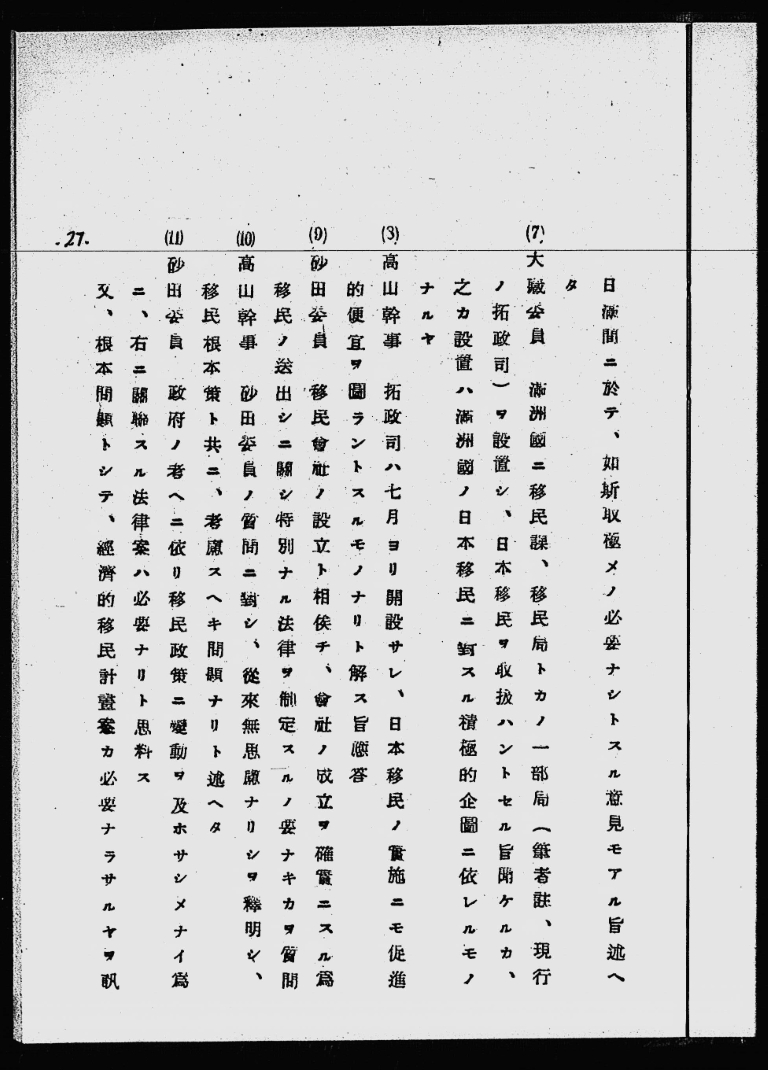 日滿間ニ於テ、如斯取極メノ必要ナシトスル意見モアル旨述ヘ
タ
(7) 大藏委員　滿洲國ニ移民課、移民局トカノ一部局（筆者註、現行
ノ拓政司）ヲ設置シ、日本移民ヲ取扱ハントセル旨聞ケルカ、
之カ設置ハ滿洲國ノ日本移民ニ對スル積極的企圖ニ依レルモノ
ナルヤ
(3) 高山幹事　拓政司ハ七月ヨリ開設サレ、日本移民ノ實施ニモ促進
的便宜ヲ圖ラントスルモノナリト解ス旨應答
(9) 砂田委員　移民會社ノ設立ト相俟チ、會社ノ成立ヲ確實ニスル爲
移民ノ送出シニ關シ特別ナル法律ヲ制定スルノ要ナキカヲ質問
(10) 高山幹事　砂田委員ノ質問ニ對シ、從來無思慮ナリシヲ釋明シ、
移民根本策ト共ニ、考慮スヘキ問題ナリト述ヘタ
(11) 砂田委員　政府ノ考ヘニ依リ移民政策ニ變動ヲ及ホサシメナイ爲
ニ、右ニ關聯スル法律案ハ必要ナリト思料ス
又、根本問題トシテ、經濟的移民計畫案カ必要ナラサルヤヲ訊
.27.